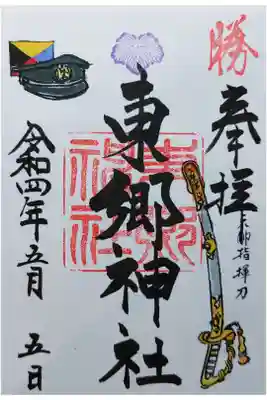 勝
奉拝
元帥指揮刀
東郷神社
令和四年五月五日